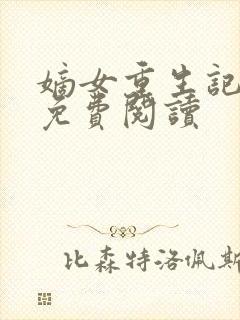 嫡女重生記
免費閱讀
比森特洛佩斯